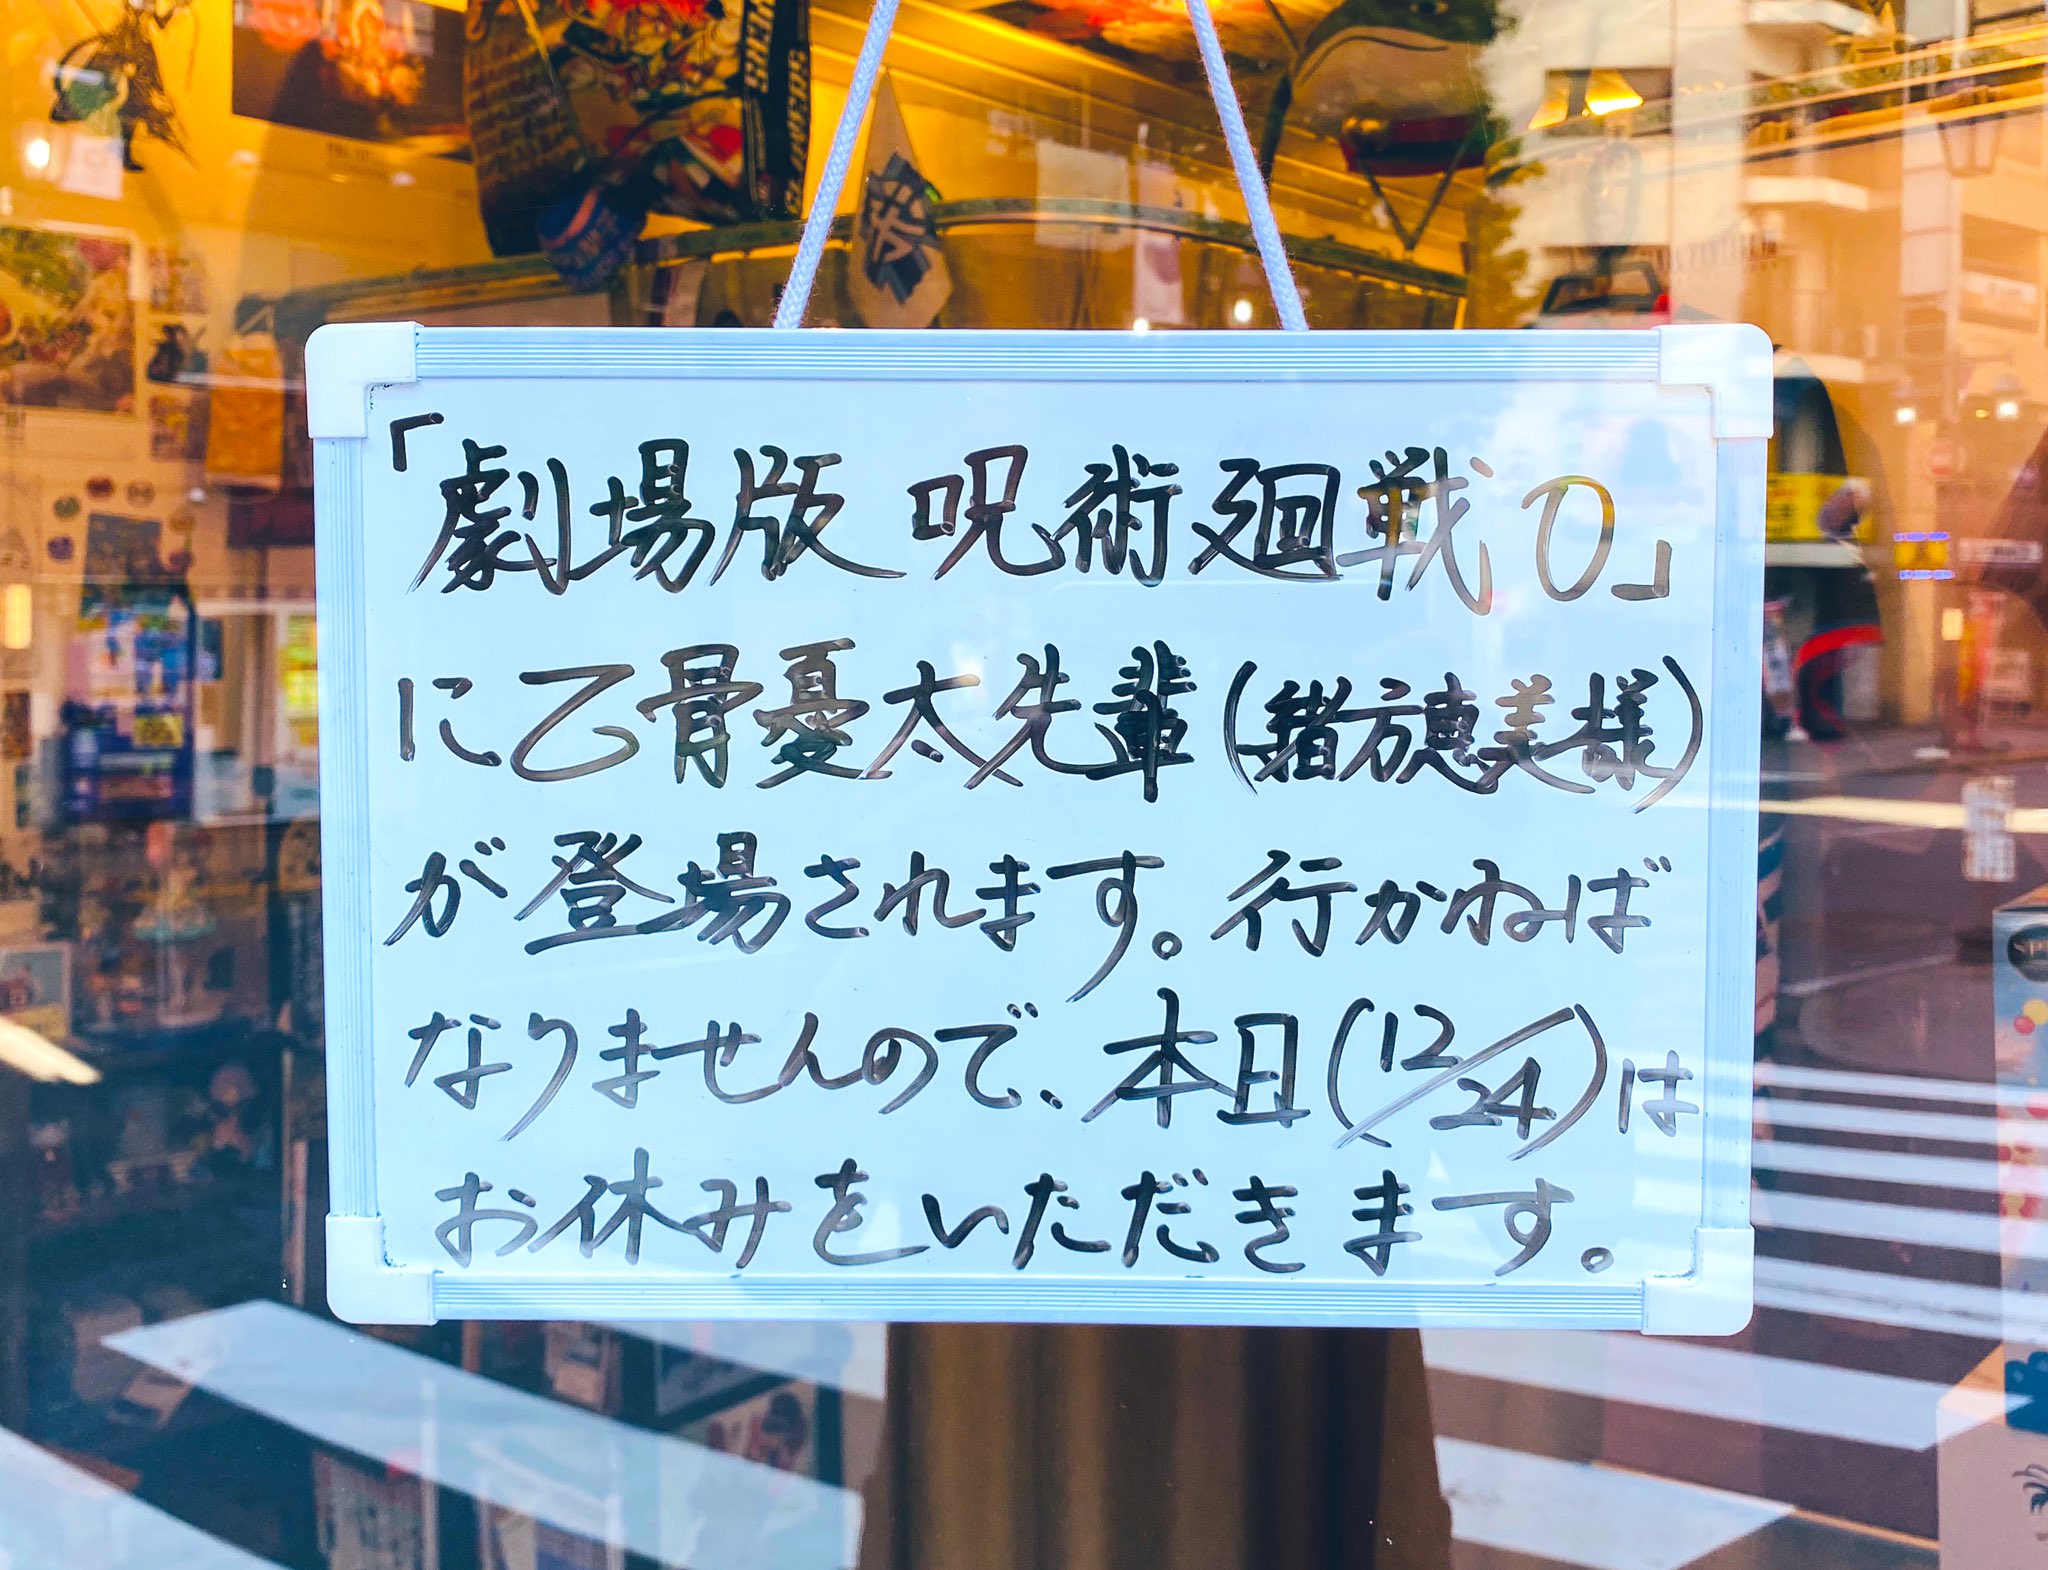 「劇場版 呪術廻戦0」
に乙骨憂太先輩(緒方恵美様)
が登場されます。行かねば
なりませんので、本日(12/24)は
お休みをいただきます。